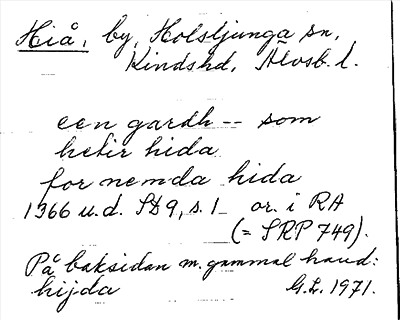 Hiå, by, Holsljunga sn,
Kindshd, Älvsb. l.
een gardh -- som
hetir hida
for nemda hida
1366 u.d. SD 9, s. 1 or. i RA
(= SRP 749).
På baksidan m. gammal hand:
hijda G.L. 1971.